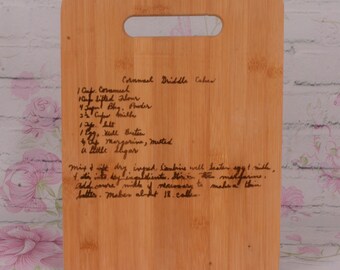 Cornmeal Griddle Cakes
1 Cup Cornmeal
1 Cup Sifted Flour
4 Bkg. Powder
2 Cups milk
1 Tsp Salt
1 Egg, Well Beaten
Cup Margarine, Melted
A little Sugar
Mix & sift dry Combine well beaten egg & milk,
& stir into dry ingredients. Stir in margarine.
Add more milk if necessary to make a thin
batter. Makes about 18 cakes.